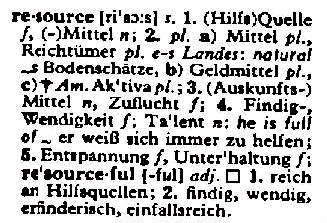 re·source [ri'sɔ:s] s. 1. (Hilfs)Quelle
f, (-)Mittel n; 2. pl. a) Mittel pl.,
Reichtümer pl. e-s Landes: natural
~s Bodenschätze, b) Geldmittel pl.,
c) † Am. Ak'tiva pl.; 3. (Auskunfts-)
Mittel n, Zuflucht f; 4. Findig-,
Wendigkeit f; Ta'lent n: he is full
of ~ er weiß sich immer zu helfen;
5. Entspannung f, Unter'haltung f;
re'source·ful [-ful] adj. □ 1. reich
an Hilfsquellen; 2. findig, wendig,
erfinderisch, einfallsreich.